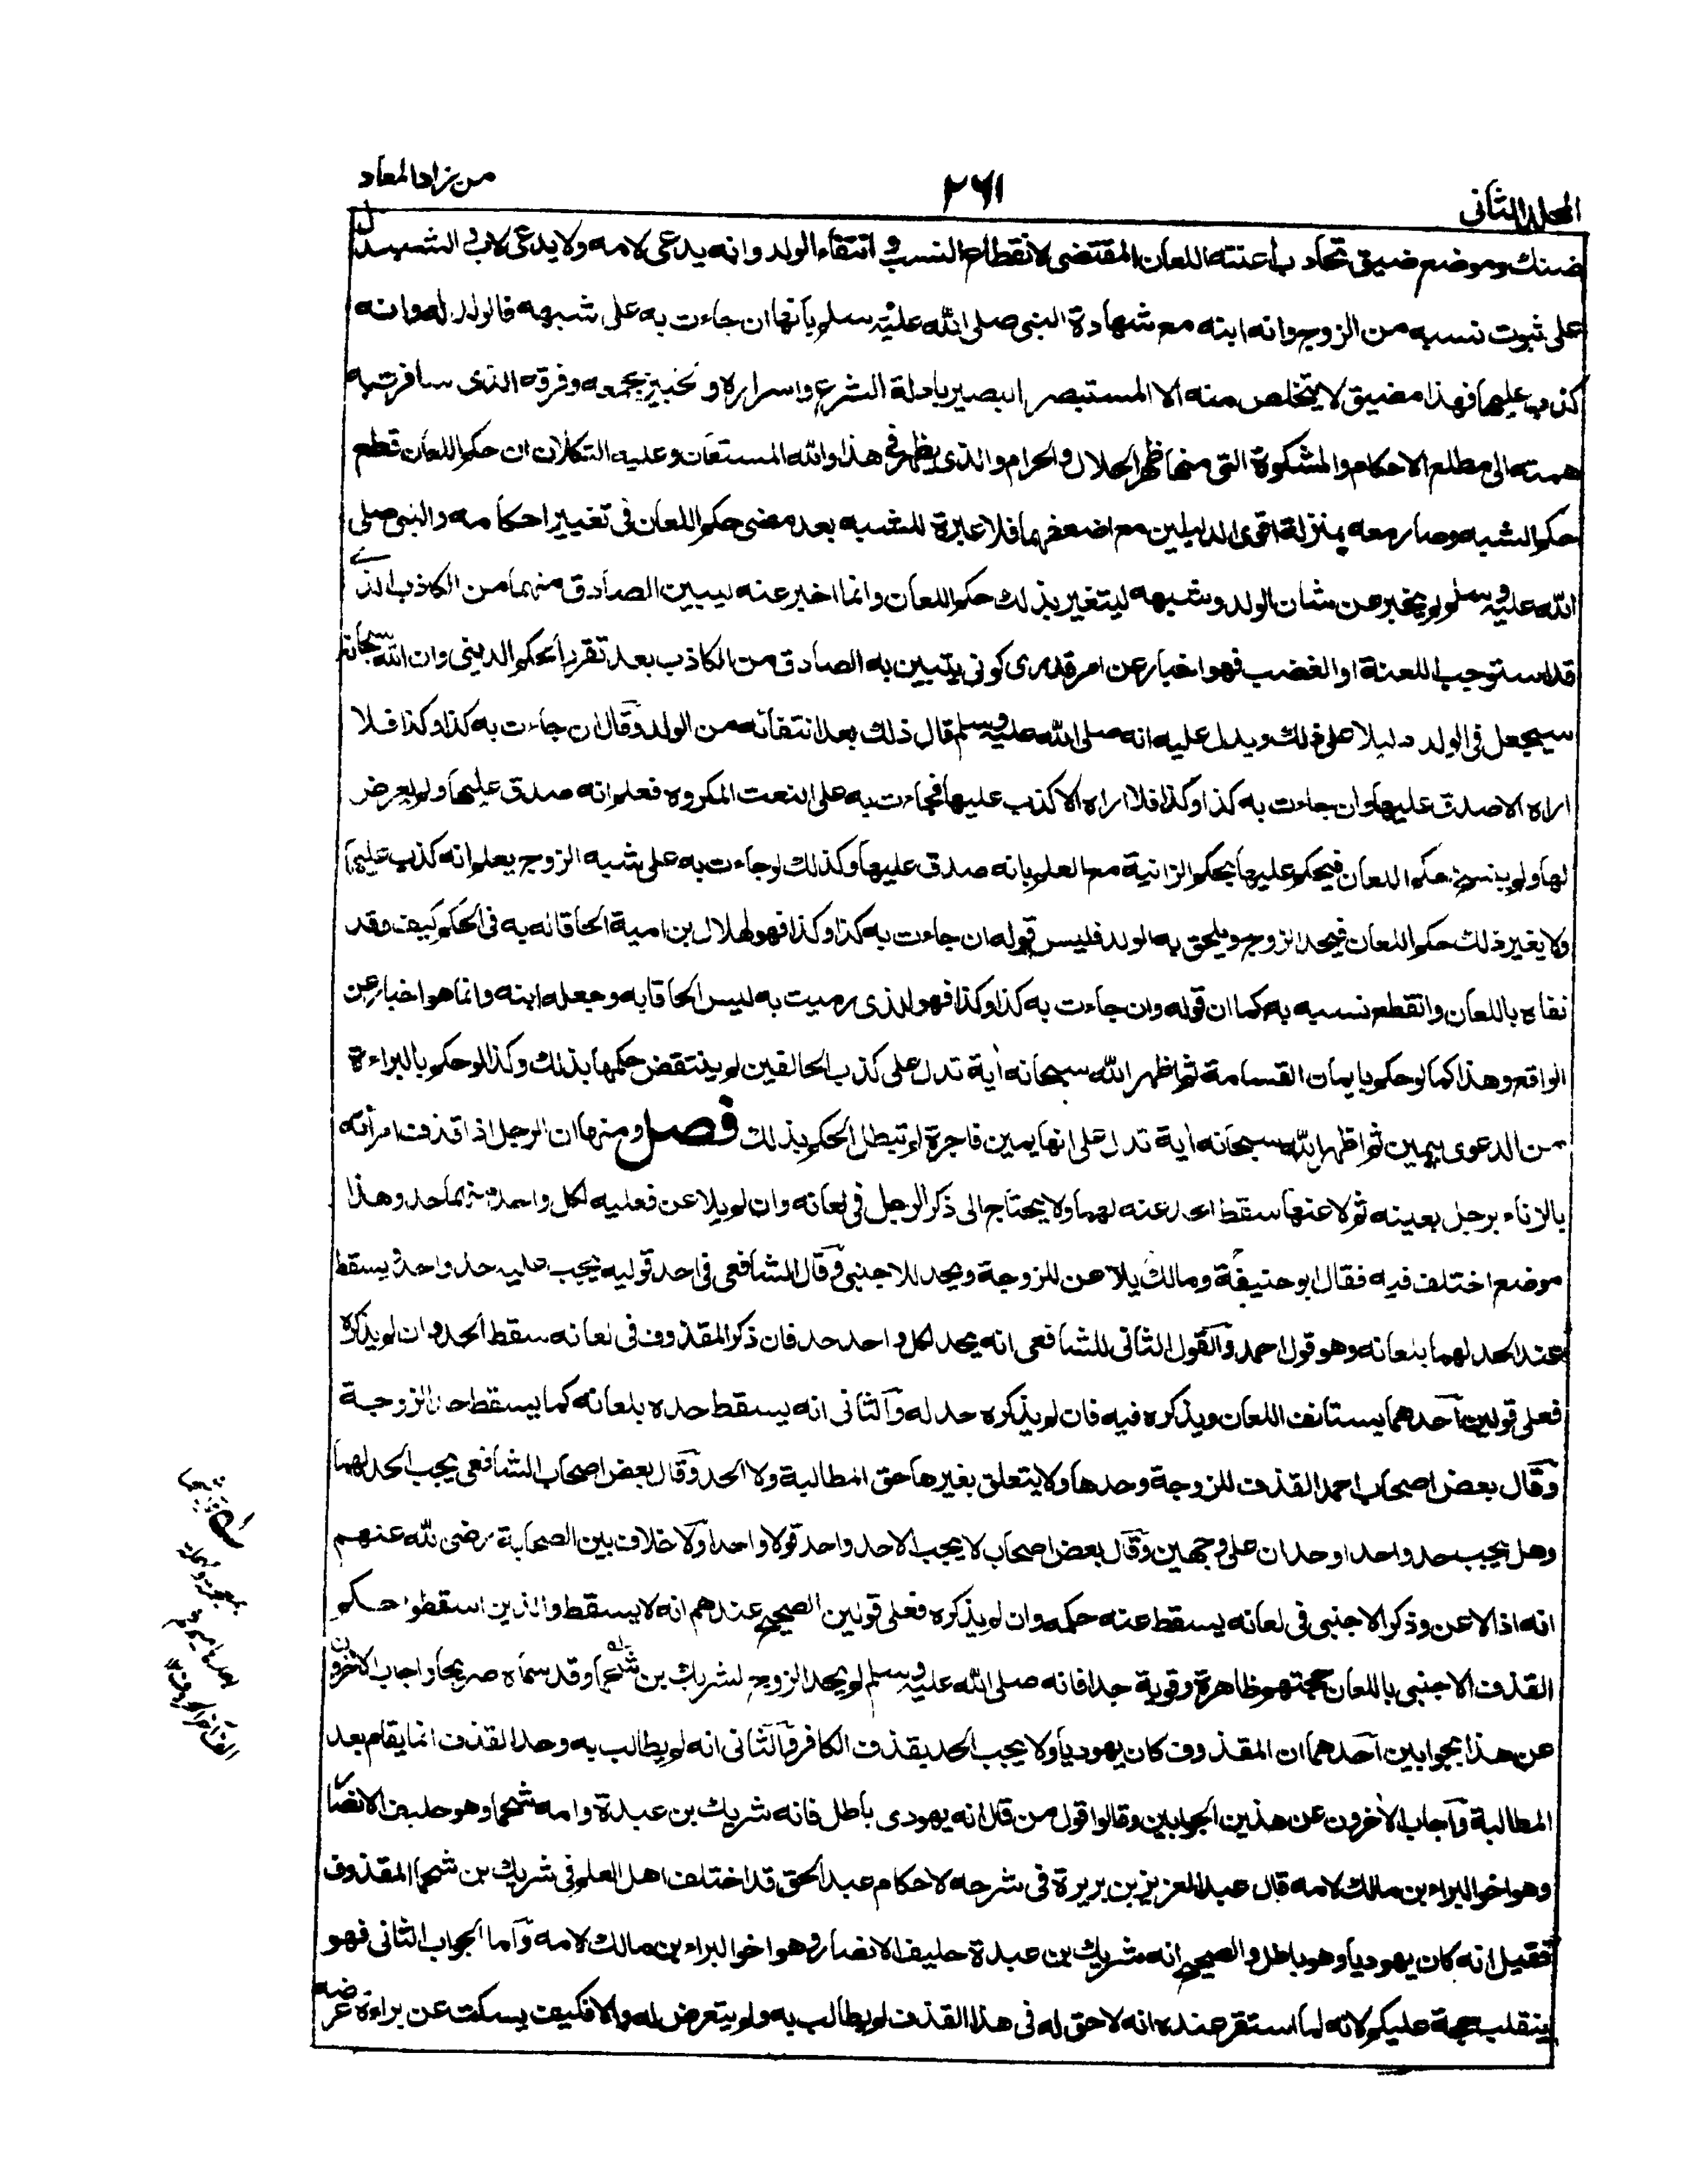 المجلد الثاني
٢٦١
من زاد المعاد
ضنك وموضع ضيق تجاذب أعنته اللعان المقتضى لانقطاع النسب و انتفاء الولد وانه يدعى لامه ولا يدعى لاب والشبه الدال
على ثبوت نسبه من الزوج وانه ابنه مع شهادة النبى صلى الله عليه وسلم بأنها ان جاءت به على شبهه فالولد له وانه
كذب عليها فهذا مضيق لا يتخلص منه الا المستبصر البصير بادلة الشرع واسراره و الخبير بجمعه وفرقه الذى سافرت به
همته الى مطلع الاحكام والمشكوة التى منها ظهر الحلال والحرام والذى يظهر فى هذا والله المستعان وعليه التكلان ان حكم اللعان قطع
حكم الشبه وصار معه بمنزلة اقوى الدليلين مع اضعفهما فلا عبرة للشبه بعد مضى حكم اللعان فى تغيير احكامه والنبى صلى
الله عليه وسلم لم يخبر عن شان الولد وشبهه ليتغير بذلك حكم اللعان وانما اخبر عنه ليبين الصادق منهما من الكاذب الذى
قد استوجب اللعنة او الغضب فهو اخبار عن امر قدرى كونى يتبين به الصادق من الكاذب بعد تقرر الحكم الدينى وان الله سبحانه
سيجعل فى الولد دليلا على ذلك ويدل عليه انه صلى الله عليه وسلم قال ذلك بعد انتفائه من الولد وقال ان جاءت به كذا وكذا فلا
اراه الا صدق عليها وان جاءت به كذا وكذا فلا اراه الا كذب عليها فجاءت به على النعت المكروه فعلم انه صدق عليها ولم يعرض
لها ولم ينسخ حكم اللعان فيحكم عليها بحكم الزانية مع العلم بانه صدق عليها وكذلك لو جاءت به على شبه الزوج يعلم انه كذب عليها
ولا يغير ذلك حكم اللعان فيحد الزوج ويلحق به الولد فليس قوله ان جاءت به كذا وكذا فهو لهلال بن امية الحاقا له به فى الحكم كيف وقد
نفاه باللعان وانقطع نسبه به كما ان قوله وان جاءت به كذا وكذا فهو للذى رميت به ليس الحاقا به وجعله ابنه وانما هو اخبار عن
الواقع وهذا كما لو حكم بايمان القسامة ثم اظهر الله سبحانه آية تدل على كذب الحالفين لم ينتقض حكمها بذلك وكذا لو حكم بالبراءة
من الدعوى بيمين ثم اظهر الله سبحانه آية تدل على انها يمين فاجرة لم يبطل الحكم بذلك فصل ومنها ان الرجل اذا قذف امرأته
بالزناء برجل بعينه ثم لاعنها سقط الحد عنه لهما ولا يحتاج الى ذكر الرجل فى لعانه وان لم يلاعن فعليه لكل واحد منهما حد وهذا
موضع اختلف فيه فقال ابو حنيفة ومالك يلاعن للزوجة ويحد للاجنبى وقال الشافعى فى احد قوليه يجب عليه حد واحد ويسقط
عنه الحد لهما بلعانه وهو قول احمد والقول الثانى للشافعى انه يحد لكل واحد حد فان ذكر المقذوف فى لعانه سقط الحد وان لم يذكره
فعلى قولين احدهما يستانف اللعان ويذكره فيه فان لم يذكره حد له والثانى انه يسقط حده بلعانه كما يسقط حد الزوجة
وقال بعض اصحاب احمد القذف للزوجة وحدها ولا يتعلق بغيرها حق المطالبة ولا الحد وقال بعض اصحاب الشافعى يجب الحد لهما
وهل يجب حد واحد او حدان على وجهين وقال بعض اصحابه لا يجب الا حد واحد قولا واحدا ولا خلاف بين الصحابة رضى الله عنهم
انه اذا لاعن وذكر الاجنبى فى لعانه يسقط عنه حكمه وان لم يذكره فعلى قولين الصحيح عندهم انه لا يسقط والذين اسقطوا حكم
القذف الاجنبى باللعان حجتهم ظاهرة وقوية جدا فانه صلى الله عليه وسلم لم يحد الزوج لشريك بن سحماء وقد سماه صريحا واجاب الآخرون
عن هذا بجوابين احدهما ان المقذوف كان يهوديا ولا يجب الحد بقذف الكافر والثانى انه لم يطالب به وحد القذف انما يقام بعد
المطالبة واجاب الآخرون عن هذين الجوابين وقالوا قول من قال انه يهودى باطل فانه شريك بن عبدة وامه سحماء وهو حليف الانصار
وهو اخو البراء بن مالك لامه قال عبد العزيز بن بريرة فى شرحه لاحكام عبد الحق قد اختلف اهل العلم فى شريك بن سحماء المقذوف
فقيل انه كان يهوديا وهو باطل والصحيح انه شريك بن عبدة حليف الانصار وهو اخو البراء بن مالك لامه واما الجواب الثانى فهو
ينقلب حجة عليكم لانه لما استقر عنده انه لا حق له فى هذا القذف لم يطالب به ولم يتعرض له والا فكيف يسكت عن براءة عرضه